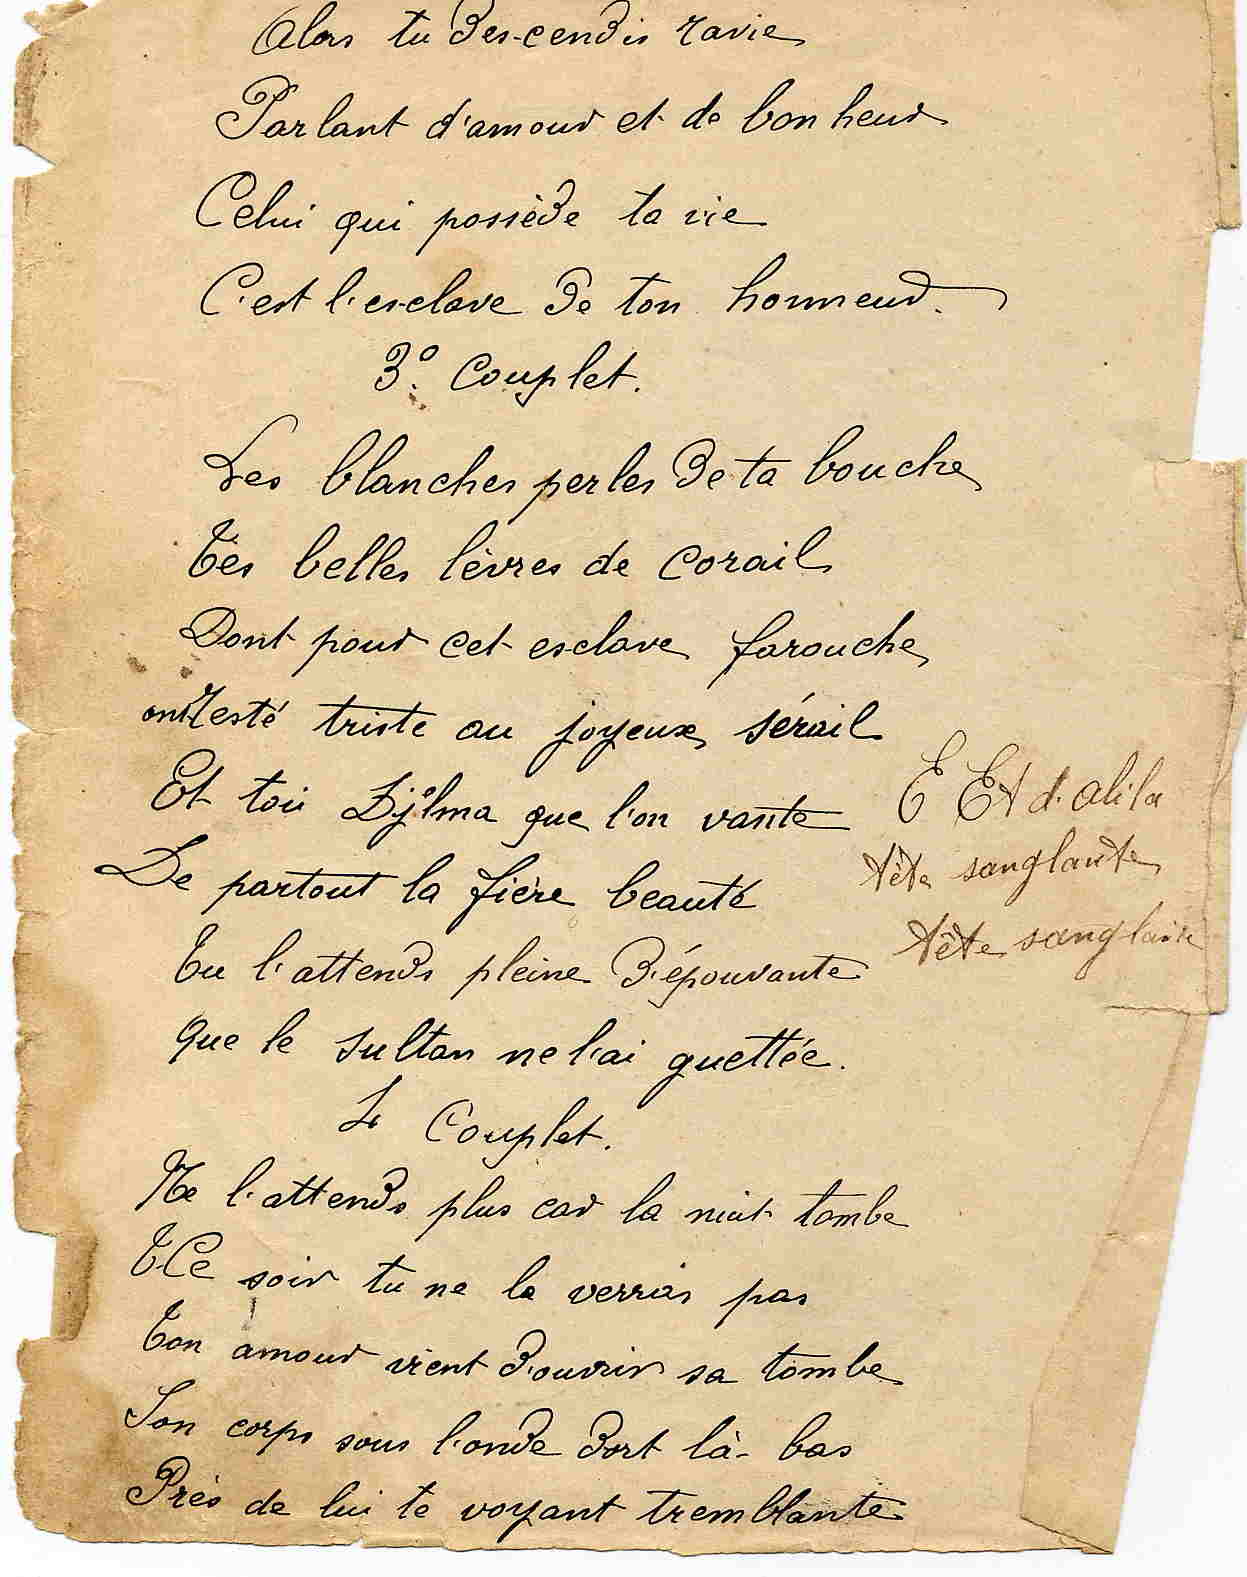 Alors tu des-cendis ravie
Parlant d'amour et de bonheur
Celui qui possède ta vie
C'est l'esclave de ton honneur.
3° Couplet.
Les blanches perles de ta bouche
Tès belles lèvres de corail
Dont pour cet esclave farouche
ont resté triste au joyeux sérail
Et toi Djelma que l'on vante
De partout la fière beauté
Tu l'attends pleine d'épouvante
que le sultan ne l'ai guettée.
4 Couplet.
Ne l'attends plus car la nuit tombe
Ce soir tu ne le verrais pas
Ton amour vient d'ouvrir sa tombe
Son corps sous l'onde dort là-bas
Près de lui te voyant tremblante
E Et d. alila
tête sanglante
tête sanglante